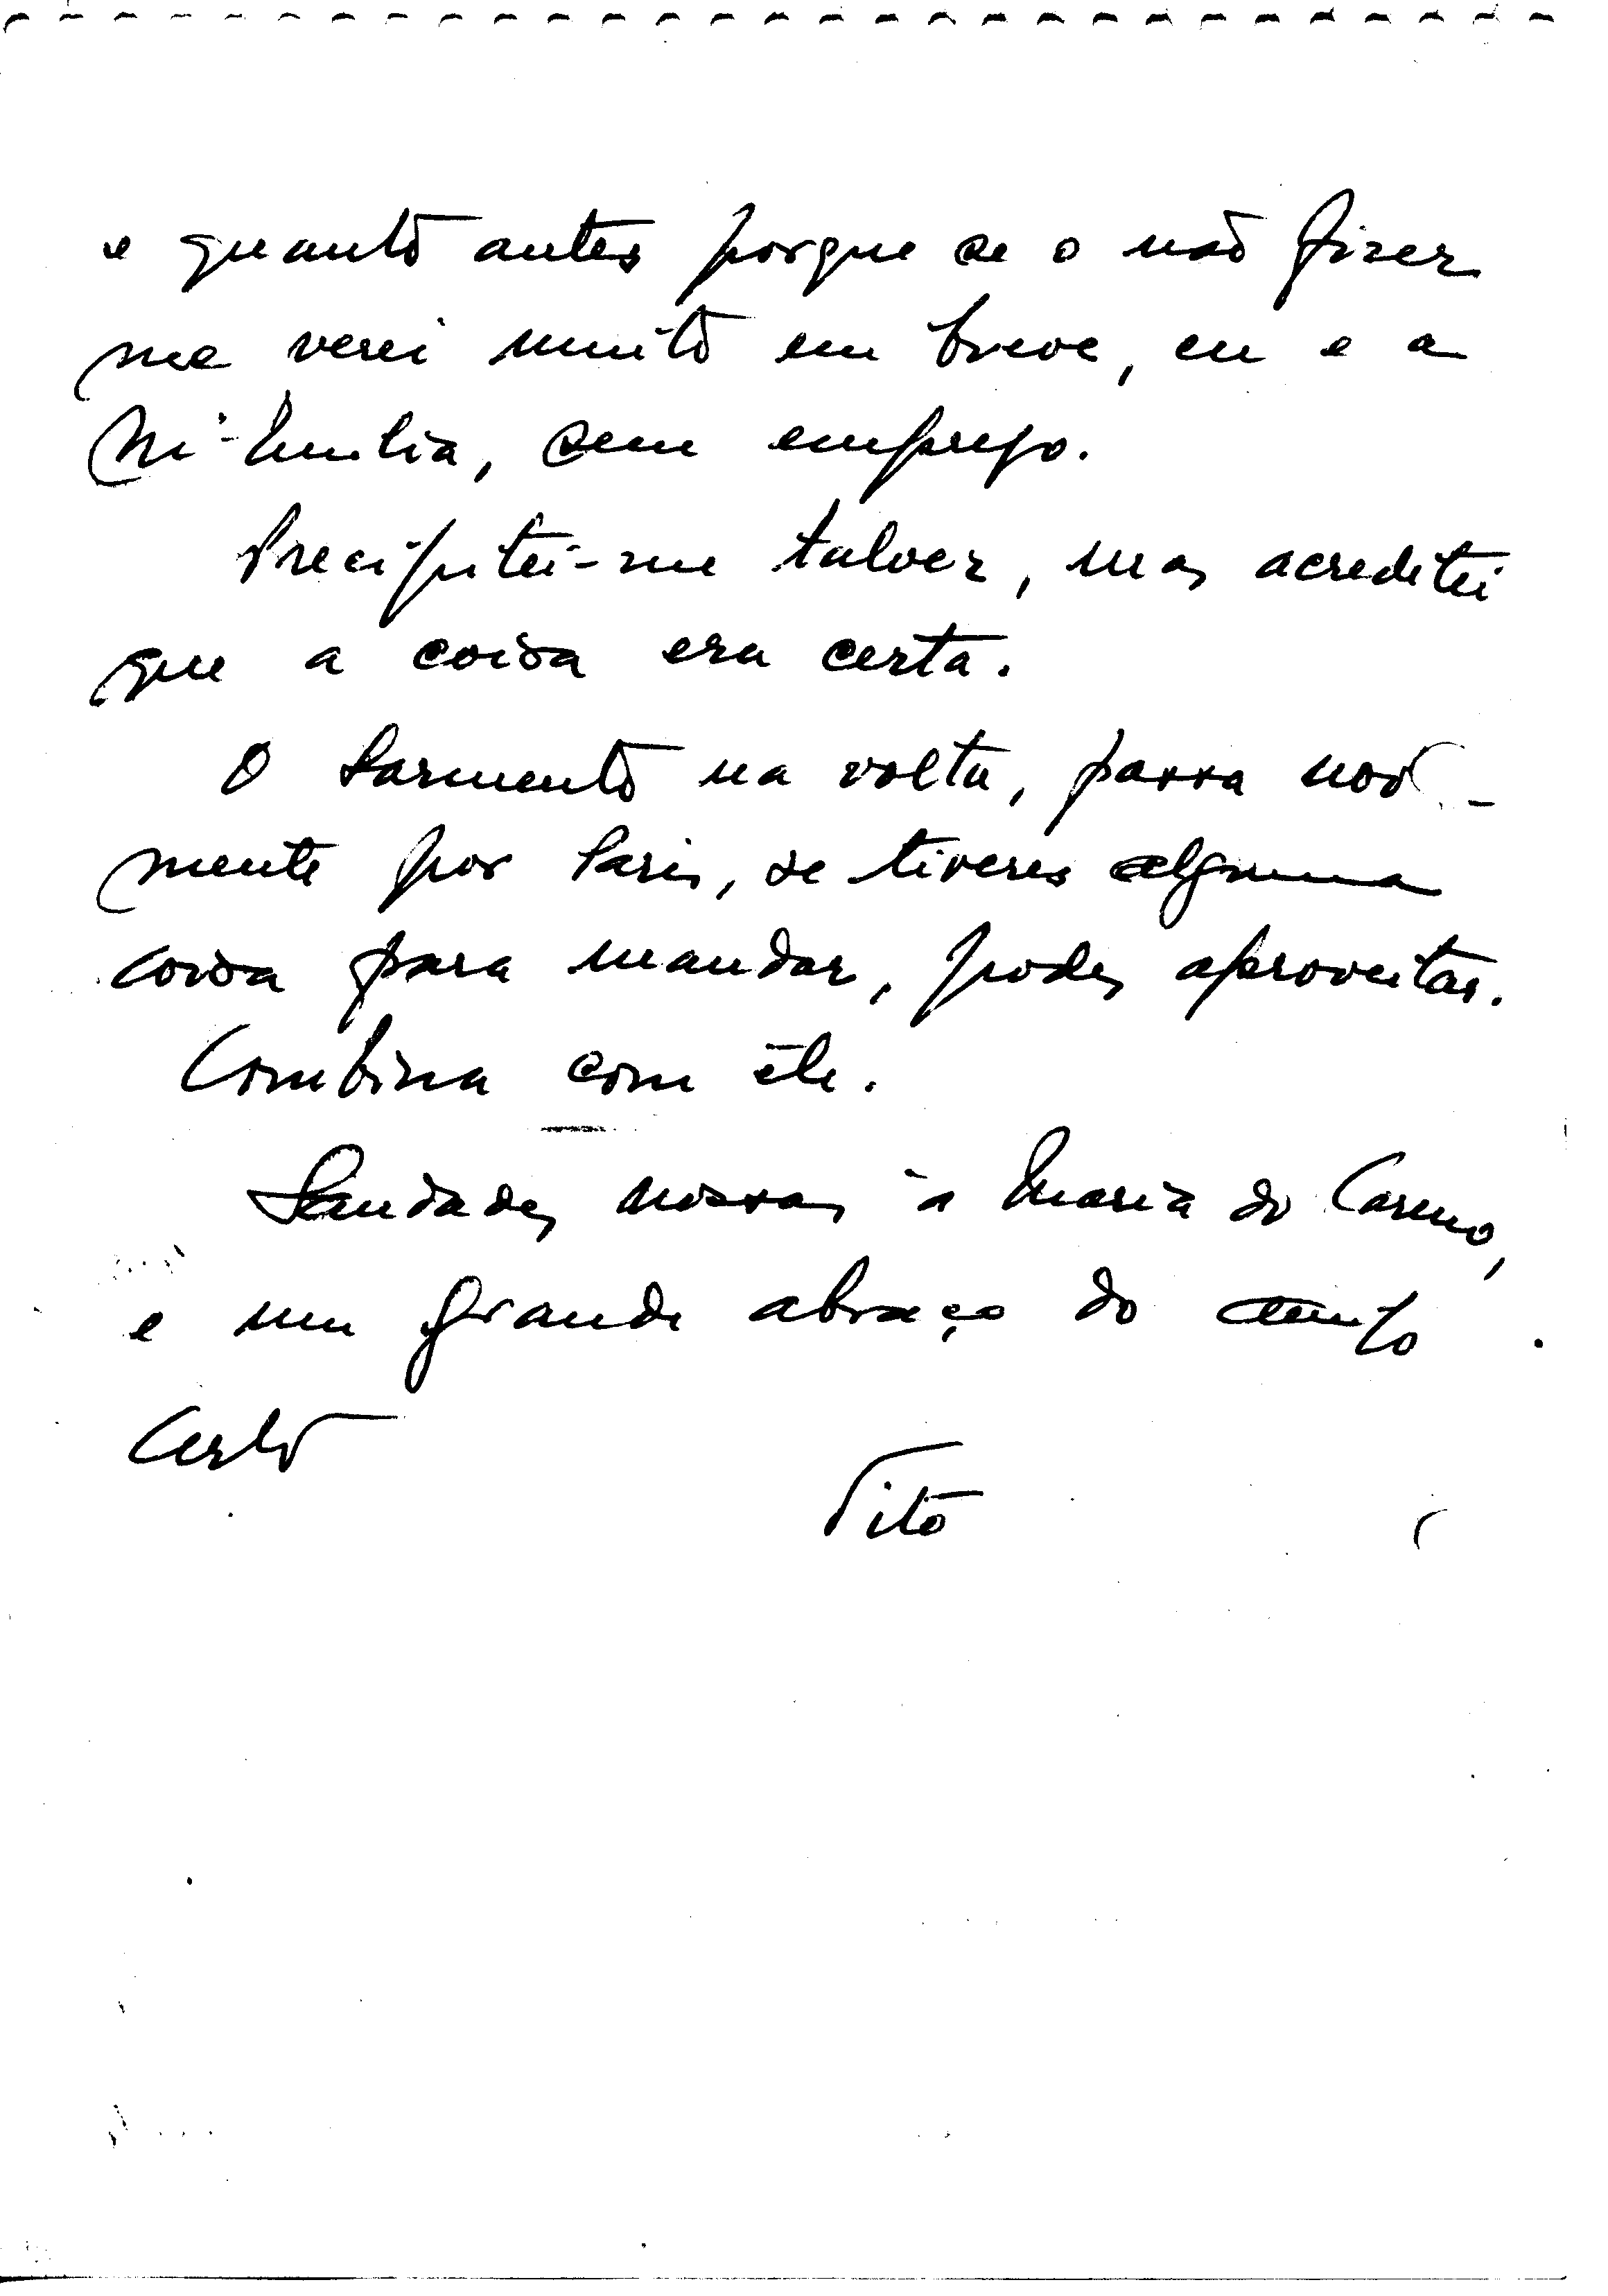 e quanto antes porque se o não fizer
me verei muito em breve, eu e a
Mª Emília, sem emprego.
Precipitei-me talvez, mas acreditei
que a coisa era certa.
O Sarmento na volta, passa nova-
mente por Paris, se tiveres alguma
coisa para mandar, podes aproveitar.
Combina com êle.
Saudades nossas à Maria do Carmo,
e um grande abraço do amigo
certo
Tito